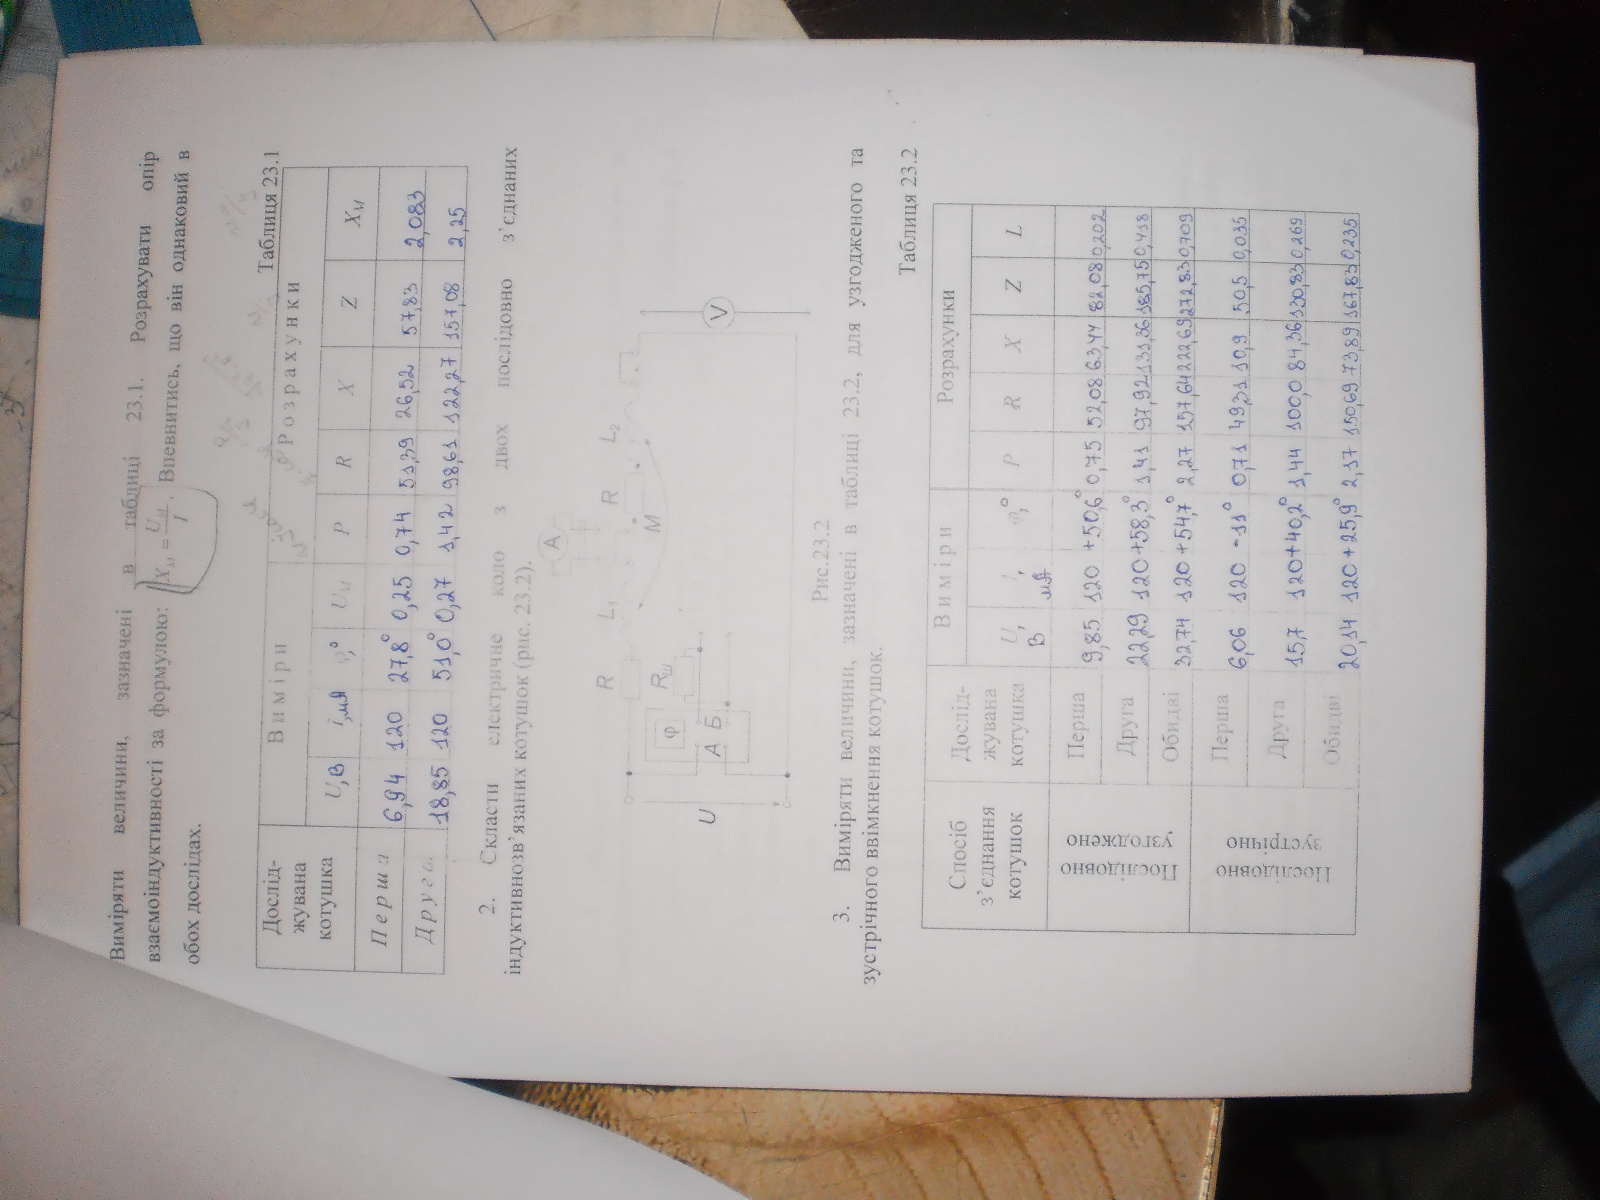 Виміряти величини, зазначені в таблиці 23.1. Розрахувати опір
взаємоіндуктивності за формулою: X_M = U_M / I . Впевнитись, що він однаковий в
обох дослідах.
Таблиця 23.1
Дослід-жувана котушка | Виміри | Розрахунки
U, В | I, мА | φ,° | U_M | P | R | X | Z | X_M
Перша | 6,94 | 120 | 27,8° | 0,25 | 0,74 | 51,39 | 26,52 | 57,83 | 2,083
Друга | 18,85 | 120 | 51,0° | 0,27 | 1,42 | 98,61 | 122,27 | 157,08 | 2,25
2. Скласти електричне коло з двох послідовно з'єднаних
індуктивнозв'язаних котушок (рис. 23.2).
A
R L₁ R L₂
M
φ R_ш
А Б
U
V
Рис.23.2
3. Виміряти величини, зазначені в таблиці 23.2, для узгодженого та
зустрічного ввімкнення котушок.
Таблиця 23.2
Спосіб з'єднання котушок | Дослід-жувана котушка | Виміри | Розрахунки
U, В | I, мА | φ,° | P | R | X | Z | L
Послідовно узгоджено
Перша | 9,85 | 120 | +50,6° | 0,75 | 52,08 | 63,44 | 82,08 | 0,202
Друга | 22,29 | 120 | +58,3° | 1,41 | 97,92 | 131,36 | 185,75 | 0,418
Обидві | 32,74 | 120 | +54,7° | 2,27 | 157,64 | 222,69 | 272,83 | 0,709
Послідовно зустрічно
Перша | 6,06 | 120 | -11° | 0,71 | 49,31 | 10,9 | 50,5 | 0,035
Друга | 15,7 | 120 | +40,2° | 1,44 | 100,0 | 84,36 | 130,83 | 0,269
Обидві | 20,14 | 120 | +25,9° | 2,17 | 150,69 | 73,89 | 167,83 | 0,235